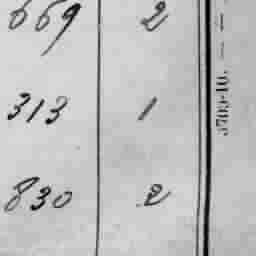 669 2
313 1
830 2
3703-10. — —